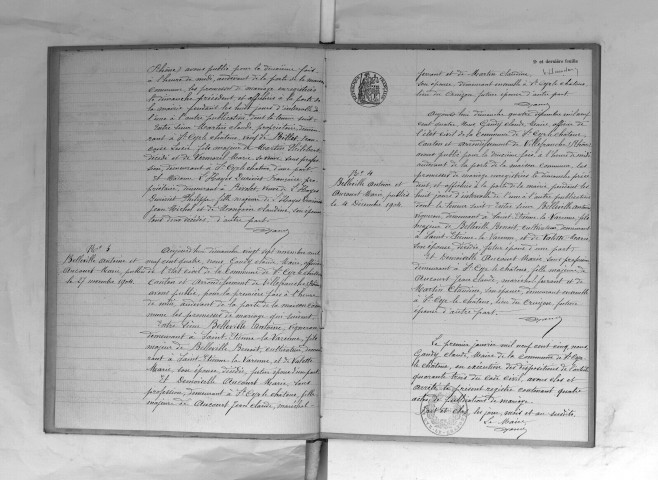 Rhône) avons publié pour la deuxième fois
à l'heure de midi, au devant de la porte de la maison
commune, les promesses de mariage enregistrées
le dimanche précédent et affichées à la porte de
la mairie pendant les huit jours d'intervalle de
l'une à l'autre publication, dont la teneur suit:
Entre sieur Martin Claude, propriétaire, demeu-
rant à St Cyr le Chatoux, veuf de Billot Fran-
çoise Lucie, fils majeur de Martin Philibert
décédé et de Vermorel Marie, sans profes-
sion, demeurant à St Cyr le Chatoux d'une part
Et Madame
priétaire, demeurant à
Philippe, fille majeure de
Jean Michel et de Claudine, son épouse
tous deux décédés, d'autre part.
Gandy
No 3
Belleville Antoine et
Aucourt Marie, publiés
le 27 novembre 1904
Aujourd'hui dimanche vingt sept novembre mil
neuf cent quatre, nous Gandy Claude Maire, officier
de l'état civil de la Commune de St Cyr le Chatoux
Canton et Arrondissement de Villefranche (Rhône)
avons publié, pour la première fois à l'heure
de midi, au devant de la porte de la maison com-
mune les promesses de mariage qui suivent:
Entre sieur Belleville Antoine, vigneron
demeurant à Saint Etienne la Varenne, fils
majeur de Belleville Benoit, cultivateur, demeu-
rant à Saint Etienne la Varenne, et de Valette
Marie, son épouse, décédée, futur époux d'une part
Et Demoiselle Aucourt Marie, sans
profession, demeurant à St Cyr le Chatoux, fille
majeure de Aucourt Jean Claude, maréchal-
et dernière feuille
ferrant et de Martin Claudine,
son épouse, demeurant ensemble à St Cyr le Chatoux
lieu de future épouse d'autre part.
Gandy
No 4
Belleville Antoine et
Aucourt Marie, publiés
le 4 Décembre 1904
Aujourd'hui dimanche quatre décembre mil neuf
cent quatre, Nous Gandy Claude, Maire, officier de
l'état civil de la Commune de St Cyr le Chatoux,
canton et arrondissement de Villefranche (Rhône)
avons publié pour la deuxième fois, à l'heure de midi
au devant de la porte de la maison commune, les
promesses de mariage enregistrées le dimanche précé-
dent et affichées à la porte de la mairie pendant les
huit jours d'intervalle de l'une à l'autre publication
dont la teneur suit: Entre sieur Belleville Antoine
vigneron, demeurant à Saint Etienne la Varenne, fils
majeur de Belleville Benoit, cultivateur, demeurant
à Saint Etienne la Varenne, et de Valette Marie
son épouse, décédée, futur époux d'une part;
Et Demoiselle Aucourt Marie, sans profession
demeurant à St Cyr le Chatoux, fille majeure de
Aucourt Jean Claude, maréchal ferrant et de
Martin Claudine, son épouse, demeurant ensemble
à St Cyr le Chatoux, lieu de future
épouse d'autre part.
Gandy
Le premier janvier mil neuf cent cinq, nous
Gandy Claude, Maire de la commune de St Cyr
le Chatoux, en exécution des dispositions de l'article
quarante trois du Code civil, avons clos et
arrêté le présent registre contenant quatre
actes de publications de mariage.
Fait et clos les jour, mois et an susdits.
Le Maire
Gandy